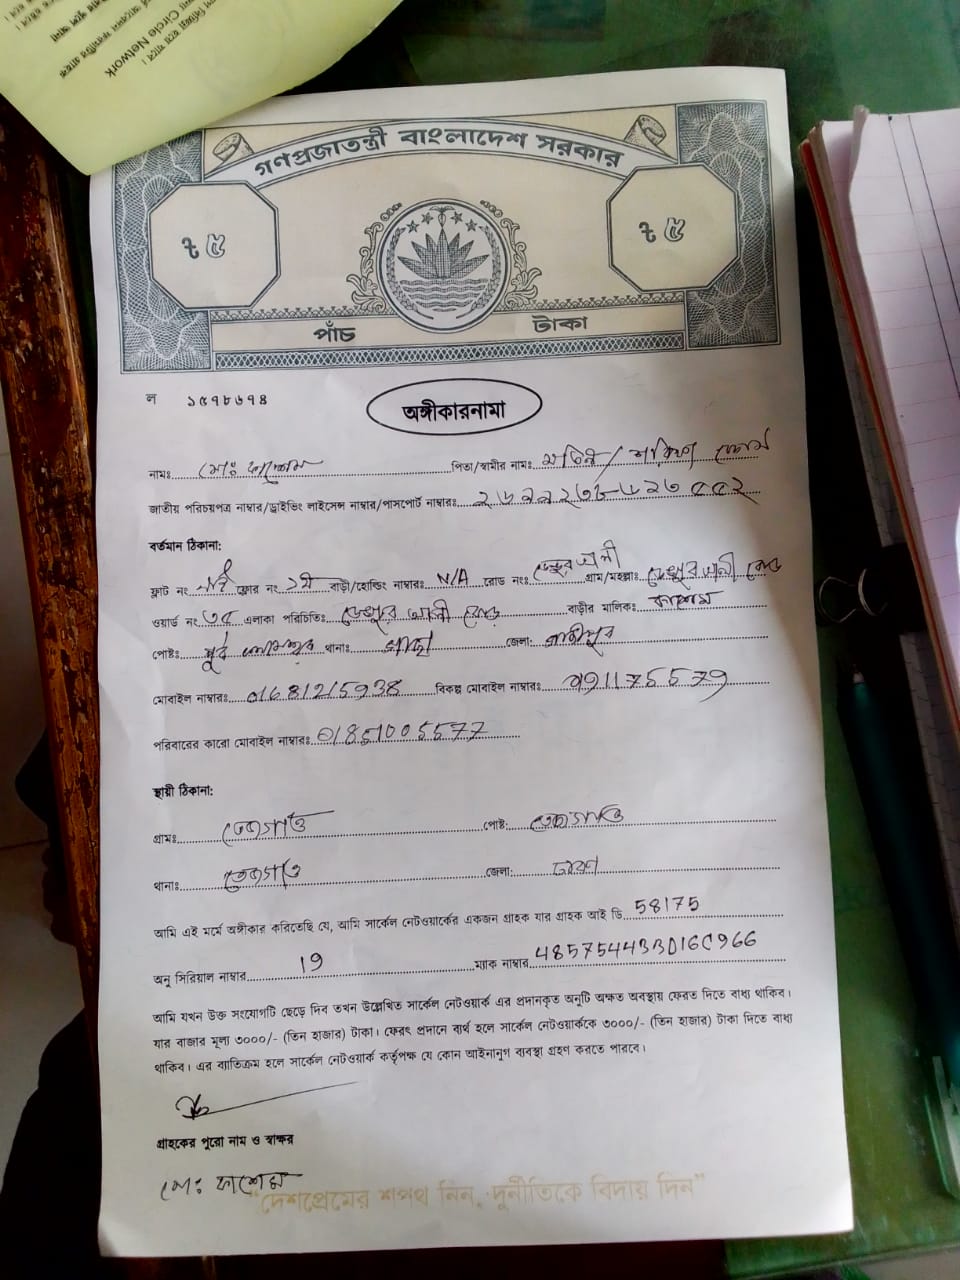 Circle Network
গণপ্রজাতন্ত্রী বাংলাদেশ সরকার
৳ ৫
৳ ৫
পাঁচ টাকা
ল ১৫৭৮৬৭৪
অঙ্গীকারনামা
নামঃ মোঃ কাশেম পিতা/স্বামীর নামঃ
জাতীয় পরিচয়পত্র নাম্বার/ড্রাইভিং লাইসেন্স নাম্বার/পাসপোর্ট নাম্বারঃ
বর্তমান ঠিকানা:
ফ্লাট নং ফ্লোর নং বাড়ী/হোল্ডিং নাম্বারঃ N/A রোড নং: গ্রাম/মহল্লাঃ
ওয়ার্ড নং ৩৫ এলাকা পরিচিতিঃ বাড়ীর মালিক: কাশেম
পোষ্টঃ পূর্ব থানাঃ গাছা জেলা: গাজীপুর
মোবাইল নাম্বারঃ 01681215938 বিকল্প মোবাইল নাম্বারঃ 01911755579
পরিবারের কারো মোবাইল নাম্বারঃ 01851005577
স্থায়ী ঠিকানা:
গ্রামঃ তেজগাঁও পোষ্ট: তেজগাঁও
থানাঃ তেজগাঁও জেলা: ঢাকা
আমি এই মর্মে অঙ্গীকার করিতেছি যে, আমি সার্কেল নেটওয়ার্কের একজন গ্রাহক যার গ্রাহক আই ডি 58175
অনু সিরিয়াল নাম্বার 19 ম্যাক নাম্বার 485754433D16C966
আমি যখন উক্ত সংযোগটি ছেড়ে দিব তখন উল্লেখিত সার্কেল নেটওয়ার্ক এর প্রদানকৃত অনুটি অক্ষত অবস্থায় ফেরত দিতে বাধ্য থাকিব।
যার বাজার মূল্য ৩০০০/- (তিন হাজার) টাকা। ফেরৎ প্রদানে ব্যর্থ হলে সার্কেল নেটওয়ার্ককে ৩০০০/- (তিন হাজার) টাকা দিতে বাধ্য
থাকিব। এর ব্যাতিক্রম হলে সার্কেল নেটওয়ার্ক কর্তৃপক্ষ যে কোন আইনানুগ ব্যবস্থা গ্রহণ করতে পারবে।
গ্রাহকের পুরো নাম ও স্বাক্ষর
মোঃ কাশেম
"দেশপ্রেমের শপথ নিন, দুর্নীতিকে বিদায় দিন"